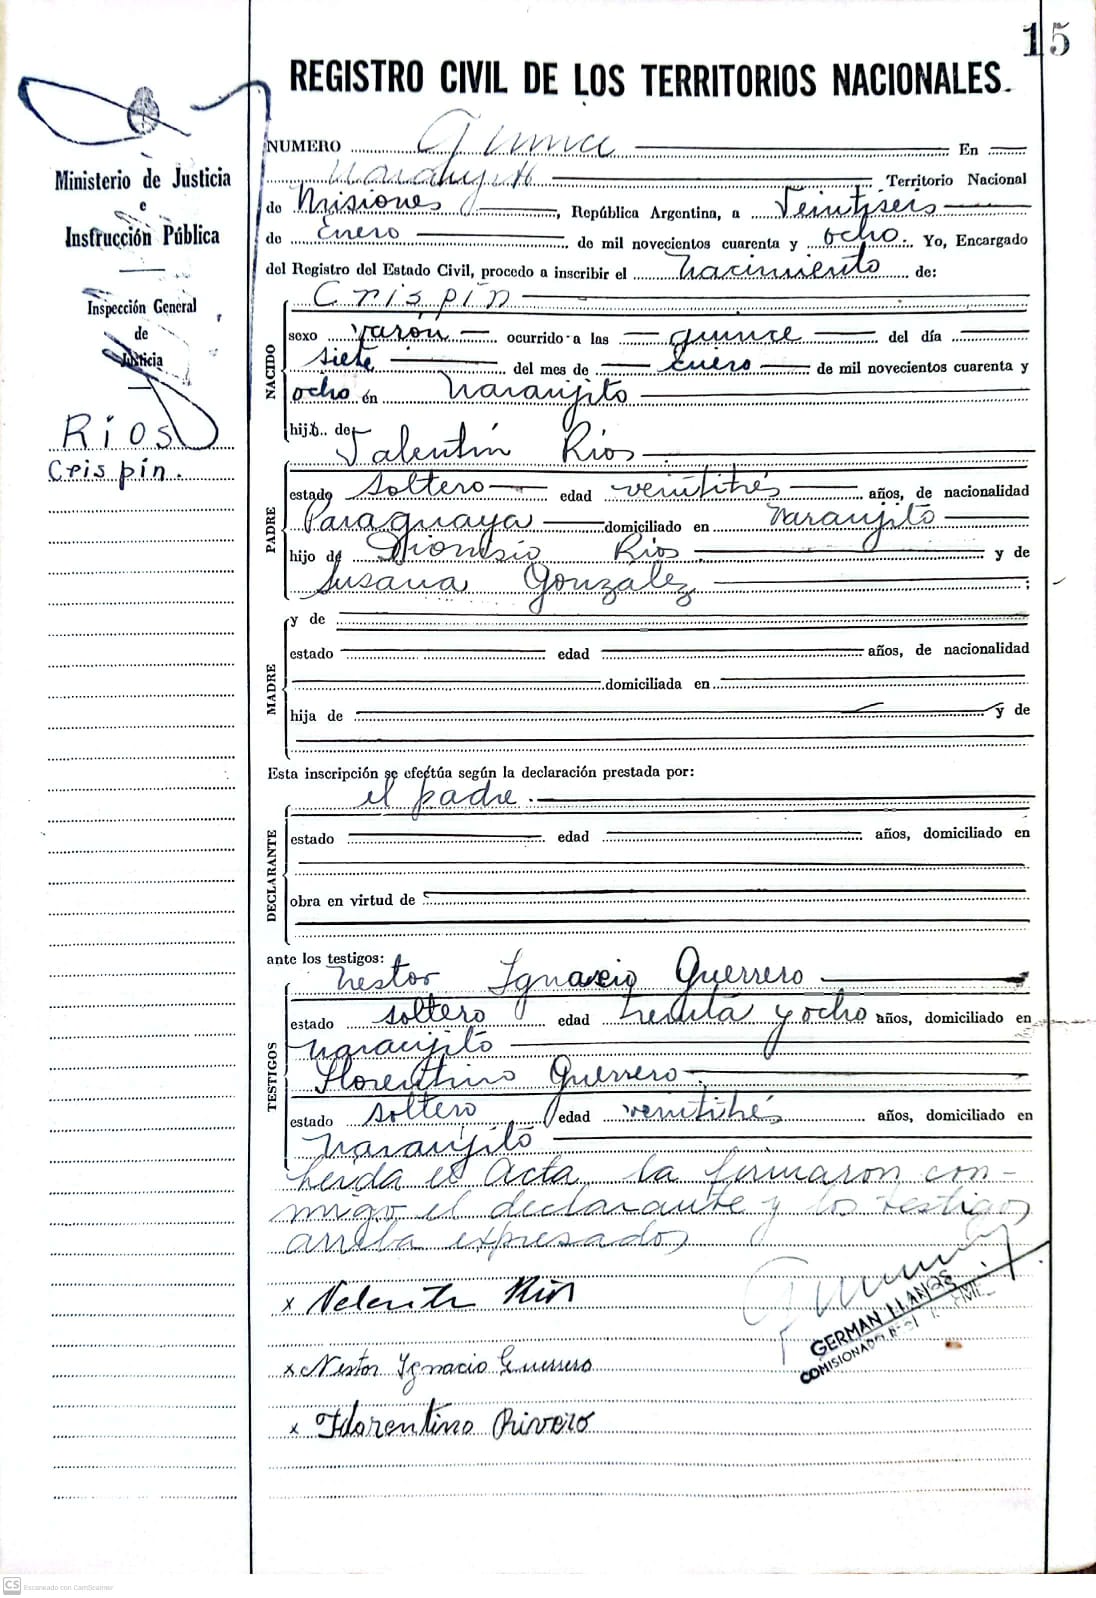 15
REGISTRO CIVIL DE LOS TERRITORIOS NACIONALES.
Ministerio de Justicia
e
Instrucción Pública
Inspección General
de
Justicia
Rios
Crispin.
NUMERO Quince En
Naranjito Territorio Nacional
de Misiones, República Argentina, a Veintiseis
de Enero de mil novecientos cuarenta y ocho. Yo, Encargado
del Registro del Estado Civil, procedo a inscribir el nacimiento de:
NACIDO
Crispín
sexo varón ocurrido a las quince del día
siete del mes de Enero de mil novecientos cuarenta y
ocho en Naranjito
hijo de
Valentín Rios
PADRE
estado soltero edad veintitrés años, de nacionalidad
Paraguaya domiciliado en Naranjito
hijo de Dionisio Rios y de
Susana Gonzalez ;
MADRE
y de
estado edad años, de nacionalidad
domiciliada en
hija de y de
Esta inscripción se efectúa según la declaración prestada por:
el padre.
DECLARANTE
estado edad años, domiciliado en
obra en virtud de
ante los testigos:
TESTIGOS
Nestor Ignacio Guerrero
estado soltero edad treinta y ocho años, domiciliado en
Naranjito
Florentino Guerrero
estado soltero edad veintitrés años, domiciliado en
Naranjito
Leida el Acta, la firmaron con-
migo el declarante y los testigos
arriba expresados
x Velentin Rios
GERMAN LLANOS
COMISIONADO
x Nestor Ignacio Guerrero
x Florentino Rivero
CS Escaneado con CamScanner